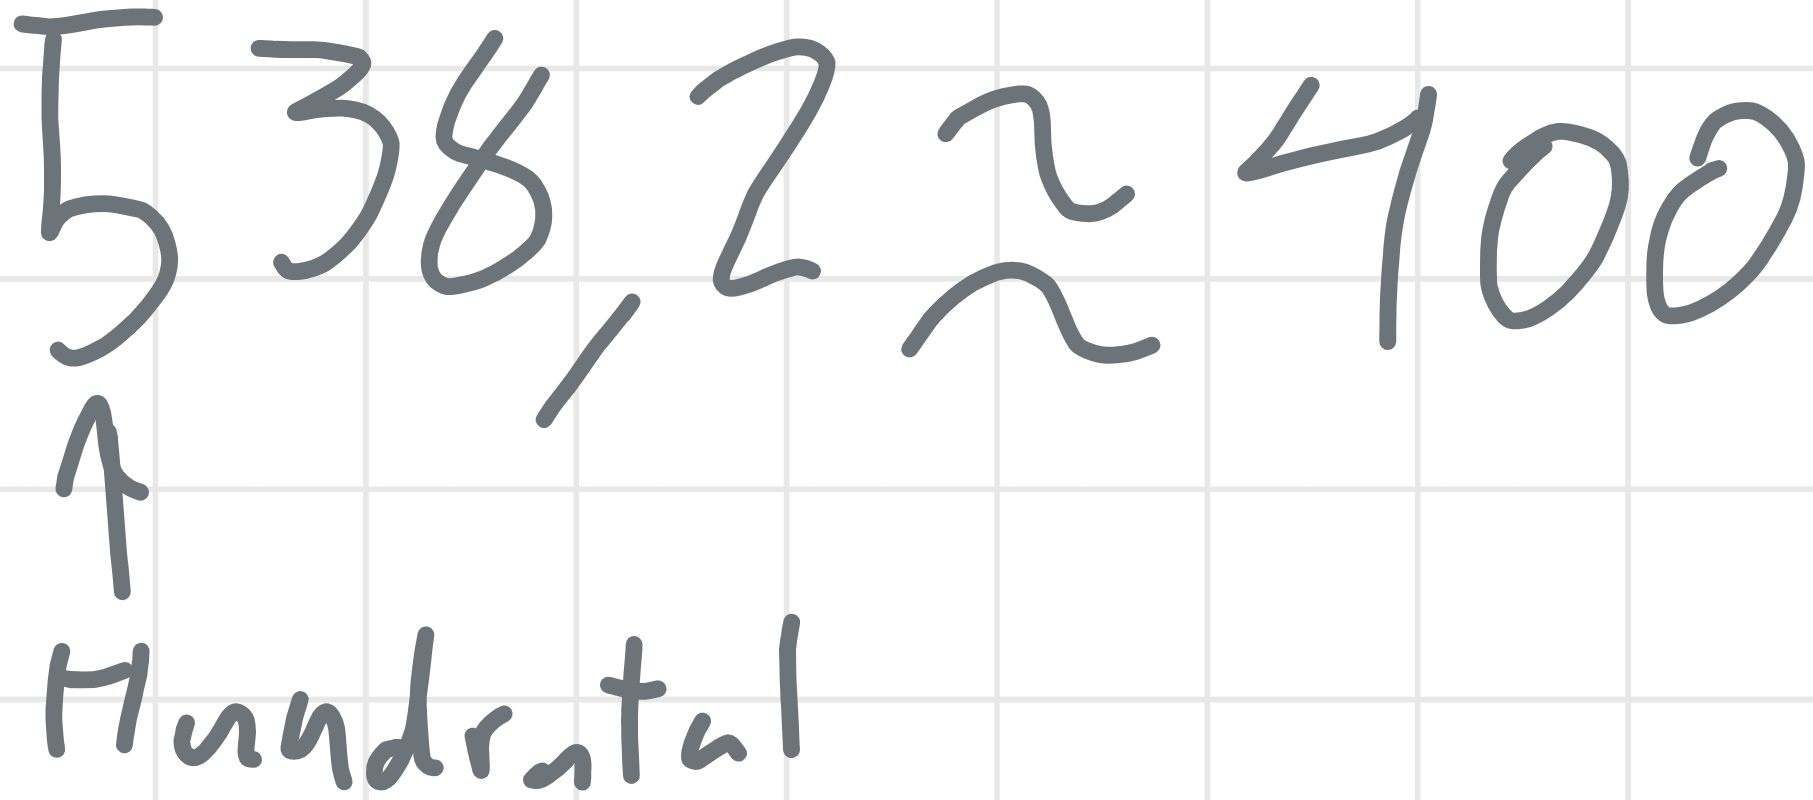 538,2 ≈ 400
↑
Hundratal